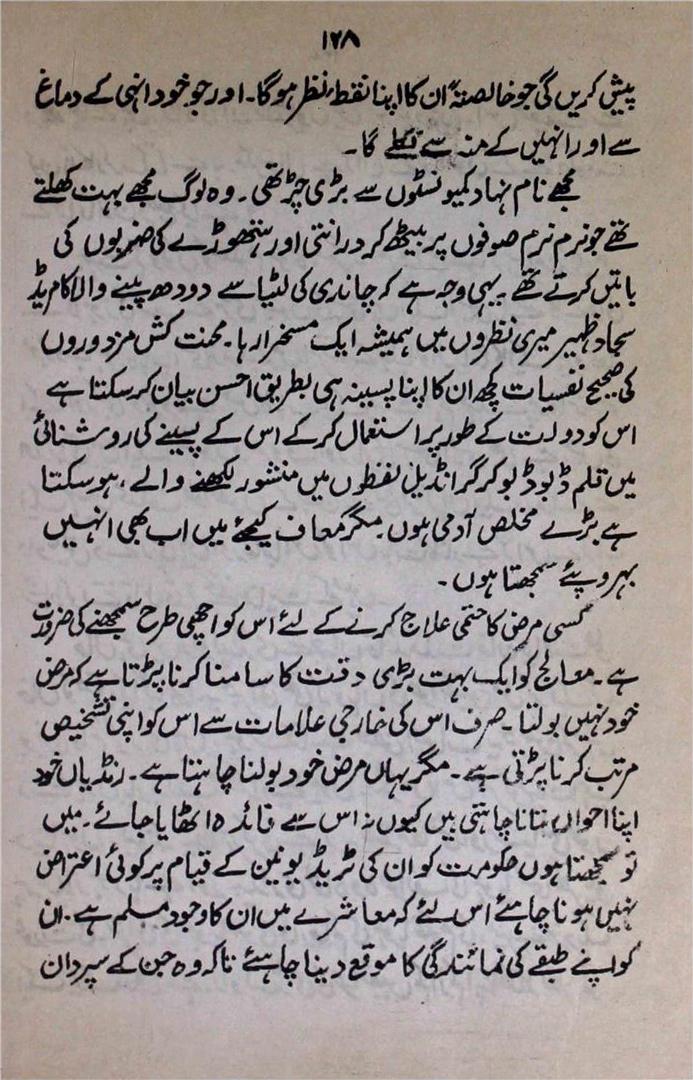 ۱۲۸
پیش کریں گی جو خالصتہً ان کا اپنا نقطۂ نظر ہو گا۔ اور جو خود انہی کے دماغ
سے اور انہیں کے منہ سے نکلے گا۔
مجھے نام نہاد کمیونسٹوں سے بڑی چڑ تھی۔ وہ لوگ مجھے بہت کھلتے
تھے جو نرم نرم صوفوں پر بیٹھ کر درانتی اور ہتھوڑے کی ضربوں کی
باتیں کرتے تھے۔ یہی وجہ ہے کہ چاندی کی لٹیا سے دودھ پینے والا کامریڈ
سجاد ظہیر میری نظروں میں ہمیشہ ایک مسخرا رہا۔ محنت کش مزدوروں
کی صحیح نفسیات کچھ ان کا اپنا پسینہ ہی بطریق احسن بیان کر سکتا ہے
اس کو دولت کے طور پر استعمال کر کے اس کے پسینے کی روشنائی
میں قلم ڈبو ڈبو کر گرانڈیل لفظوں میں منشور لکھنے والے، ہو سکتا
ہے بڑے مخلص آدمی ہوں۔ مگر معاف کیجئے میں اب بھی انہیں
بہروپئے سمجھتا ہوں۔
کسی مرض کا حتمی علاج کرنے کے لئے اس کو اچھی طرح سمجھنے کی ضرورت
ہے۔ معالج کو ایک بہت بڑی دقت کا سامنا کرنا پڑتا ہے کہ مرض
خود نہیں بولتا۔ صرف اس کی خارجی علامات سے اس کو اپنی تشخیص
مرتب کرنا پڑتی ہے۔ مگر یہاں مرض خود بولنا چاہتا ہے۔ رنڈیاں خود
اپنا احوال بتانا چاہتی ہیں کیوں نہ اس سے فائدہ اٹھایا جائے۔ میں
تو سمجھتا ہوں حکومت کو ان کی ٹریڈ یونین کے قیام پر کوئی اعتراض
نہیں ہونا چاہئے اس لئے کہ معاشرے میں ان کا وجود مسلم ہے۔ ان
کو اپنے طبقے کی نمائندگی کا موقع دینا چاہئے تاکہ وہ جن کے سپرد ان